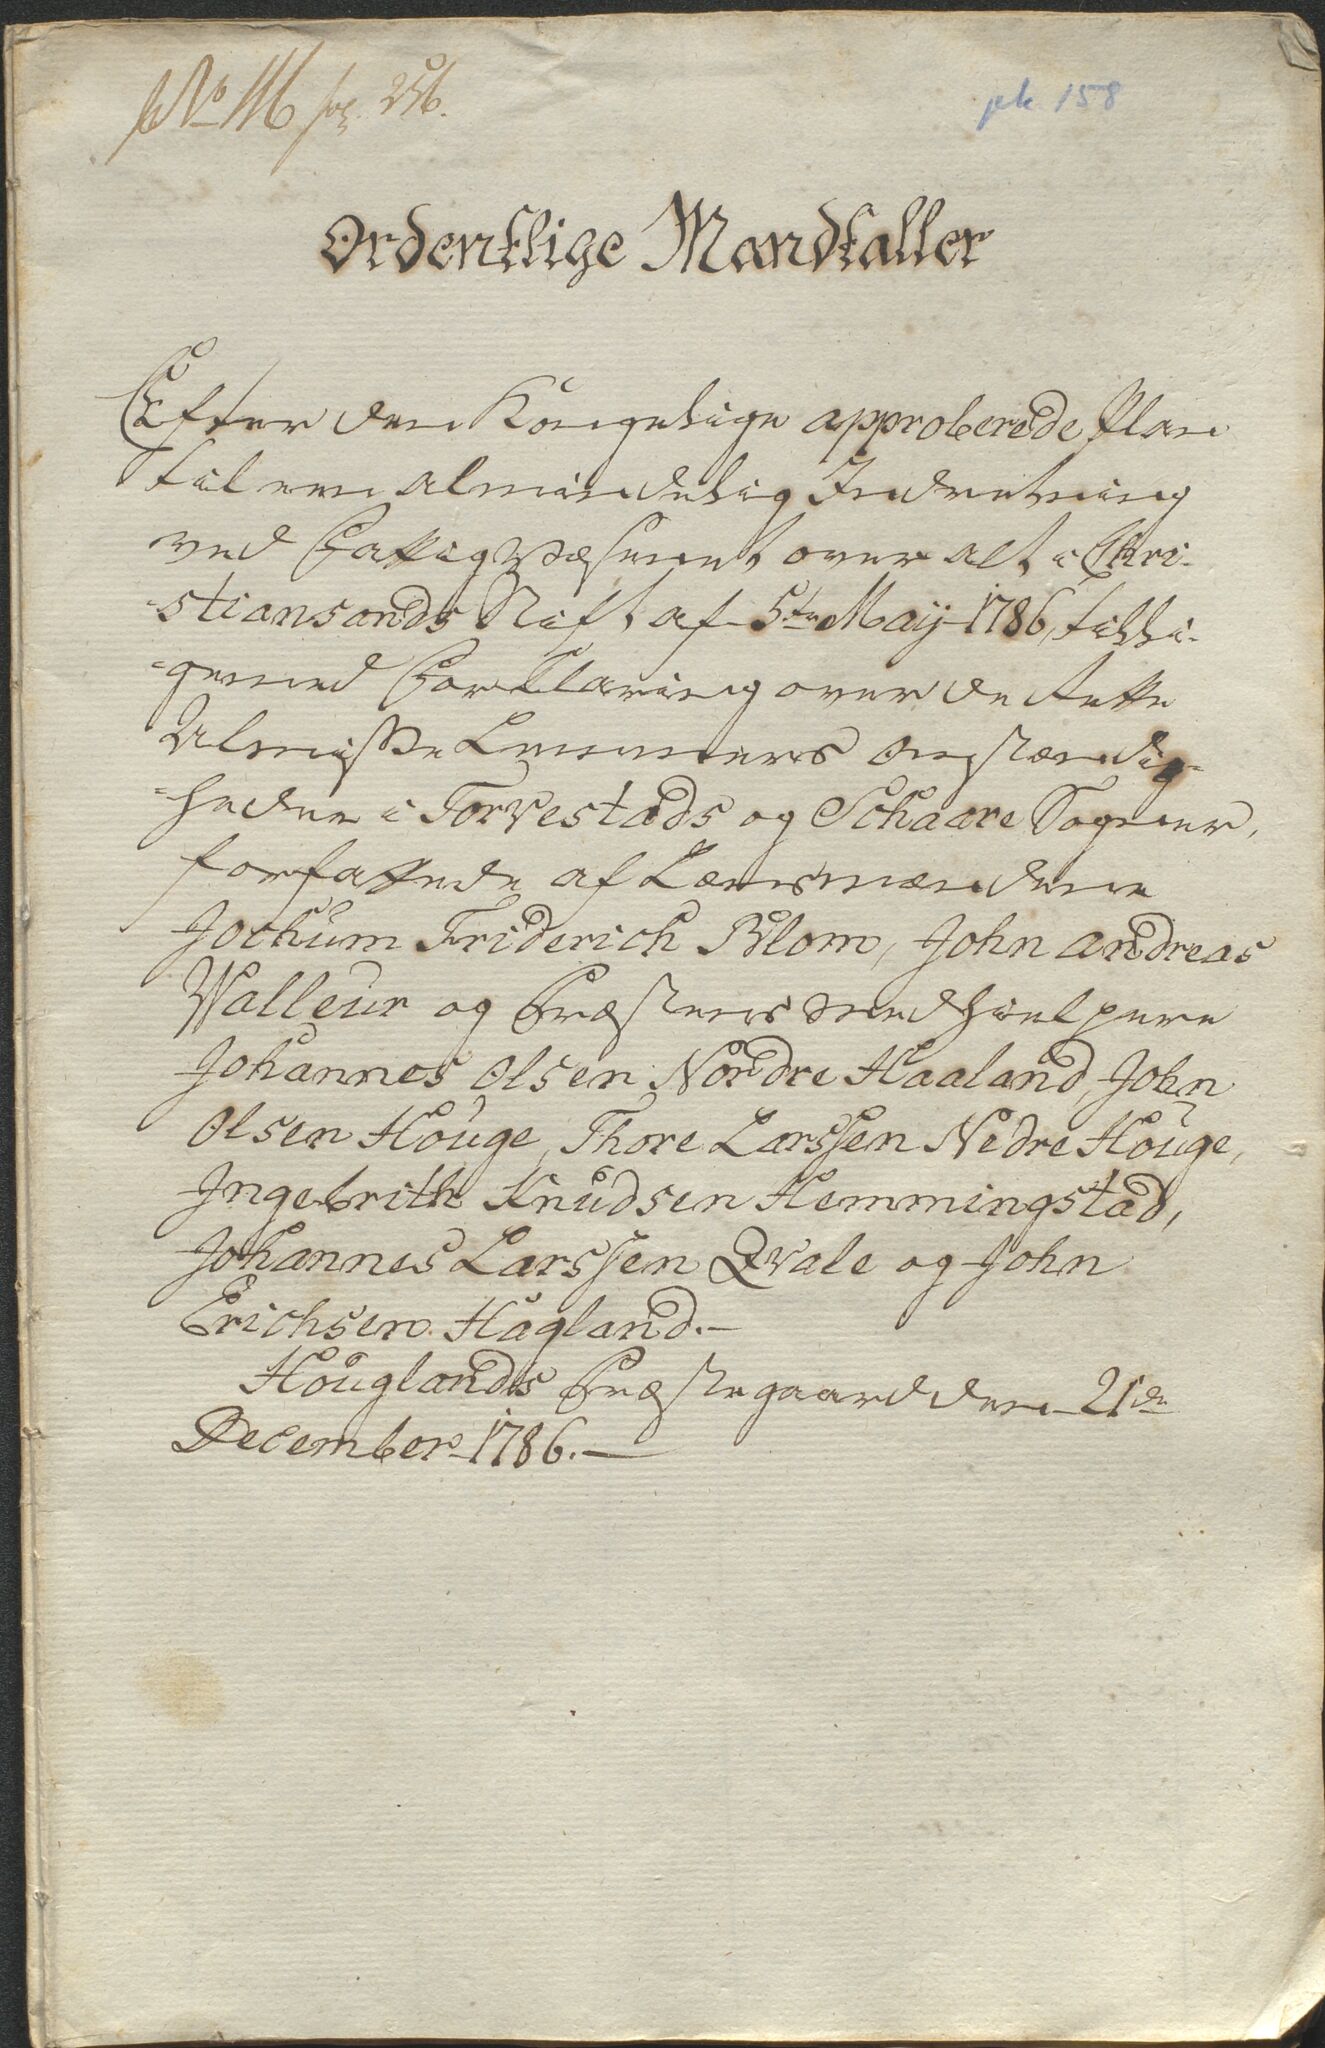 No 116 pag. 256.
pk 158
Ordentlige Mandtaller
Efter den Kongelige approberede Plan
til een almindelig Indretning
ved Fattigvæsenet over alt i Chri-
stiansands Stift af 5te Maij 1786, tilli-
gemed Forklaring over de rette
Almisse Lemmers Omstændig-
heder i Torvestads og Schaare Sogner,
forfattede af Lænsmændene
Jochum Friderich Blom, John Andreas
Walleur og Præstens Medhielpere
Johannes Olsen Nordre Haaland, John
Olsen Houge, Thore Larssen Nedre Houge,
Ingebrith Knudsen Hemmingstad,
Johannes Larssen Qvale og John
Erichsen Hagland.-
Houglands Præstegaard den 21de
December 1786.-